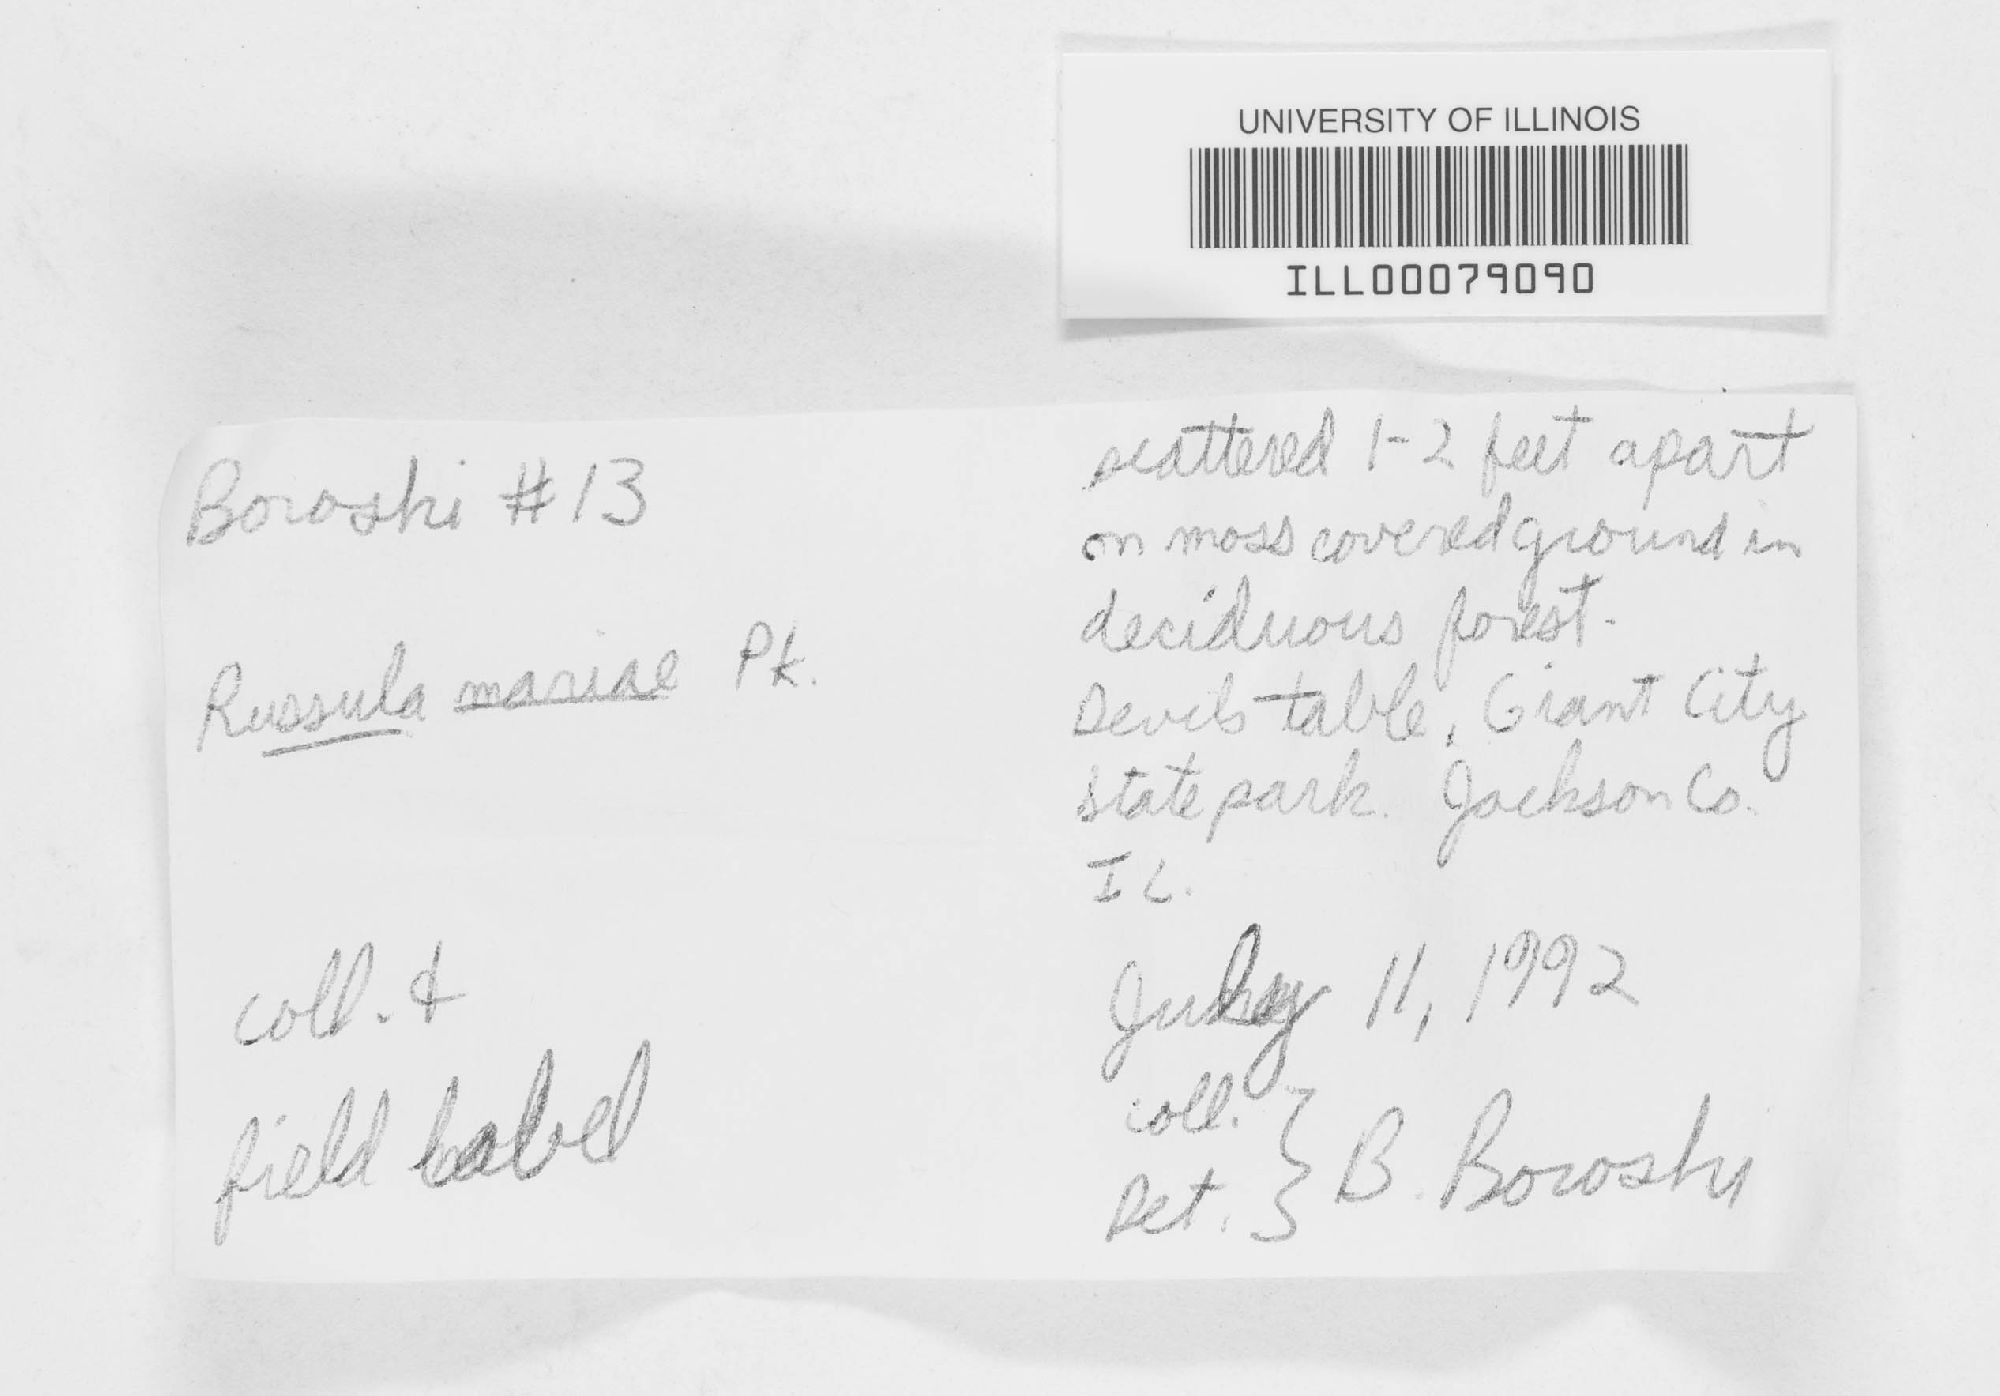 UNIVERSITY OF ILLINOIS
ILL00079090
Boroski #13
Russula mariae Pk.
coll. &
field label
scattered 1-2 feet apart
on moss covered ground in
deciduous forest.
Devils table, Giant City
State park. Jackson Co.
IL.
July 11, 1992
coll.
Det. } B. Boroski